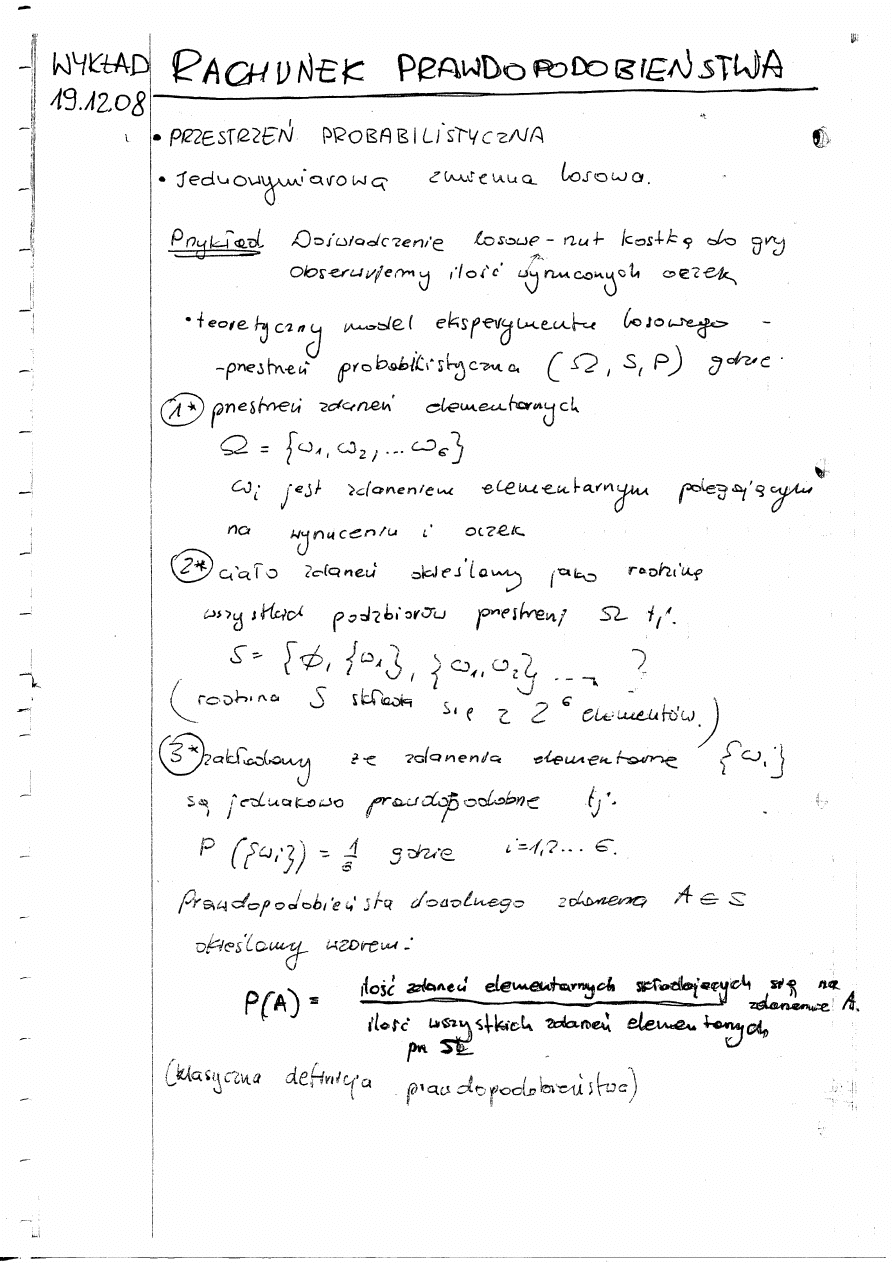 WYKŁAD
19.12.08
RACHUNEK PRAWDOPODOBIEŃSTWA
• PRZESTRZEŃ PROBABILISTYCZNA
• Jednowymiarowa zmienna losowa.
Przykład Doświadczenie losowe - rzut kostką do gry
Obserwujemy ilość wyrzuconych oczek
• teoretyczny model eksperymentu losowego -
- przestrzeń probabilistyczna (Ω, S, P) gdzie
1* przestrzeń zdarzeń elementarnych
Ω = {ω1, ω2, ... ω6}
ωi jest zdarzeniem elementarnym polegającym
na wyrzuceniu i oczek
2* ciało zdarzeń określamy jako rodzinę
wszystkich podzbiorów przestrzeni Ω tj.
S = {ϕ, {ω1}, {ω1, ω2} ... }
(rodzina S składa się z 2^6 elementów.)
3* zakładamy że zdarzenia elementarne {ωi}
są jednakowo prawdopodobne tj.
P ({ωi}) = 1/6 gdzie i=1,2... 6.
Prawdopodobieństa dowolnego zdarzenia A ∈ S
określamy wzorem:
P(A) = ilość zdarzeń elementarnych składających się na zdarzenie A.
ilość wszystkich zdarzeń elementarnych
prz Ω
(klasyczna definicja prawdopodobieństwa)